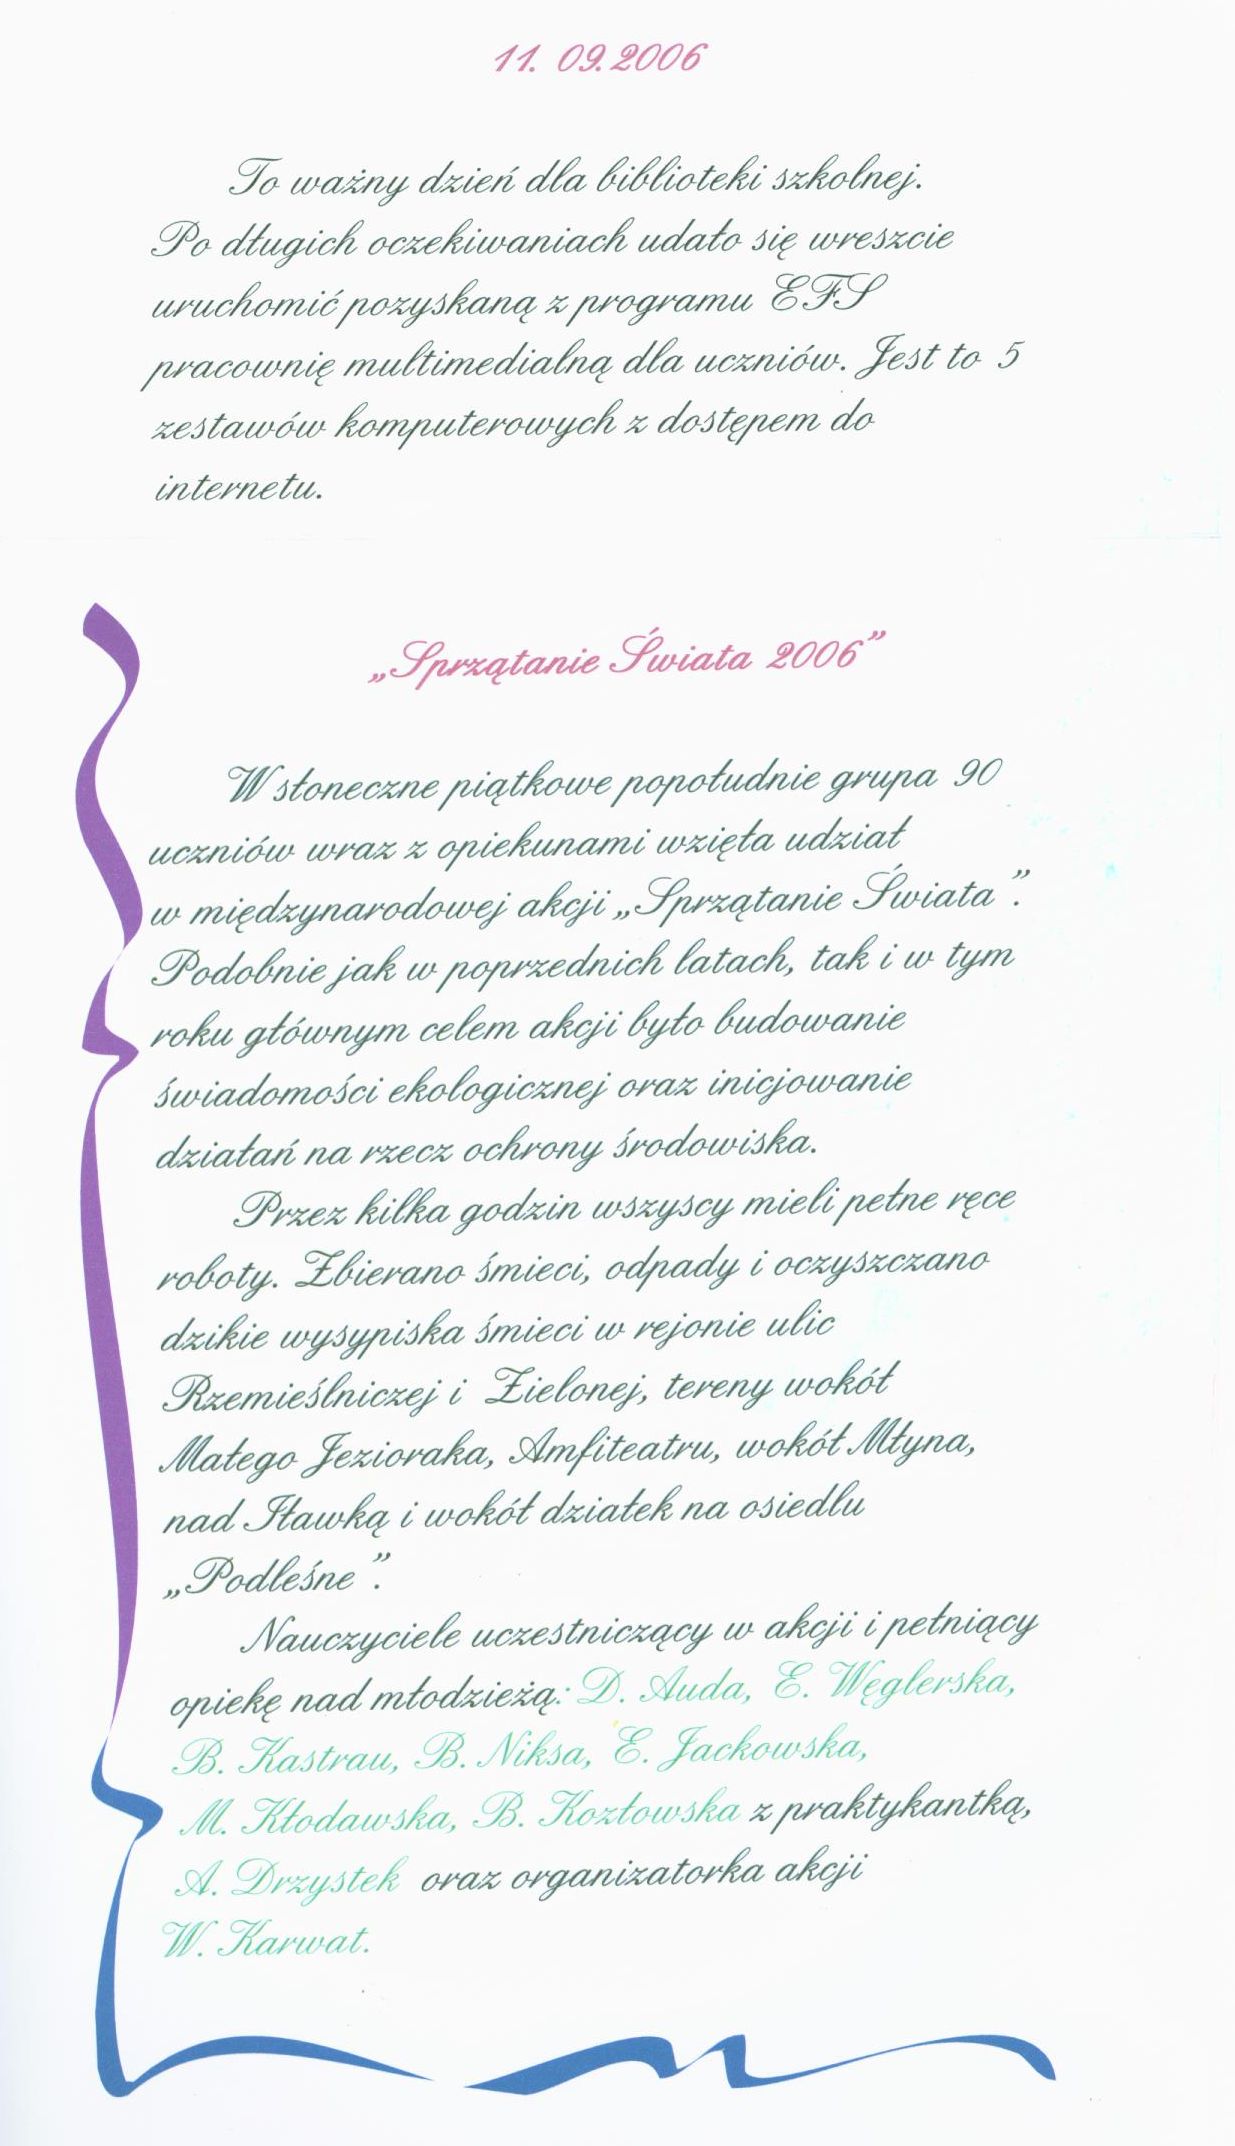 11. 09.2006
To ważny dzień dla biblioteki szkolnej.
Po długich oczekiwaniach udało się wreszcie
uruchomić pozyskaną z programu EFS
pracownię multimedialną dla uczniów. Jest to 5
zestawów komputerowych z dostępem do
internetu.
„Sprzątanie Świata 2006”
W słoneczne piątkowe popołudnie grupa 90
uczniów wraz z opiekunami wzięła udział
w międzynarodowej akcji „Sprzątanie Świata”.
Podobnie jak w poprzednich latach, tak i w tym
roku głównym celem akcji było budowanie
świadomości ekologicznej oraz inicjowanie
działań na rzecz ochrony środowiska.
Przez kilka godzin wszyscy mieli pełne ręce
roboty. Zbierano śmieci, odpady i oczyszczano
dzikie wysypiska śmieci w rejonie ulic
Rzemieślniczej i Zielonej, tereny wokół
Małego Jezioraka, Amfiteatru, wokół Młyna,
nad Iławką i wokół działek na osiedlu
„Podleśne”.
Nauczyciele uczestniczący w akcji i pełniący
opiekę nad młodzieżą: D. Auda, E. Węglerska,
B. Kastrau, B. Niksa, E. Jackowska,
M. Kłodawska, B. Kozłowska z praktykantką,
A. Drzystek oraz organizatorka akcji
W. Karwat.